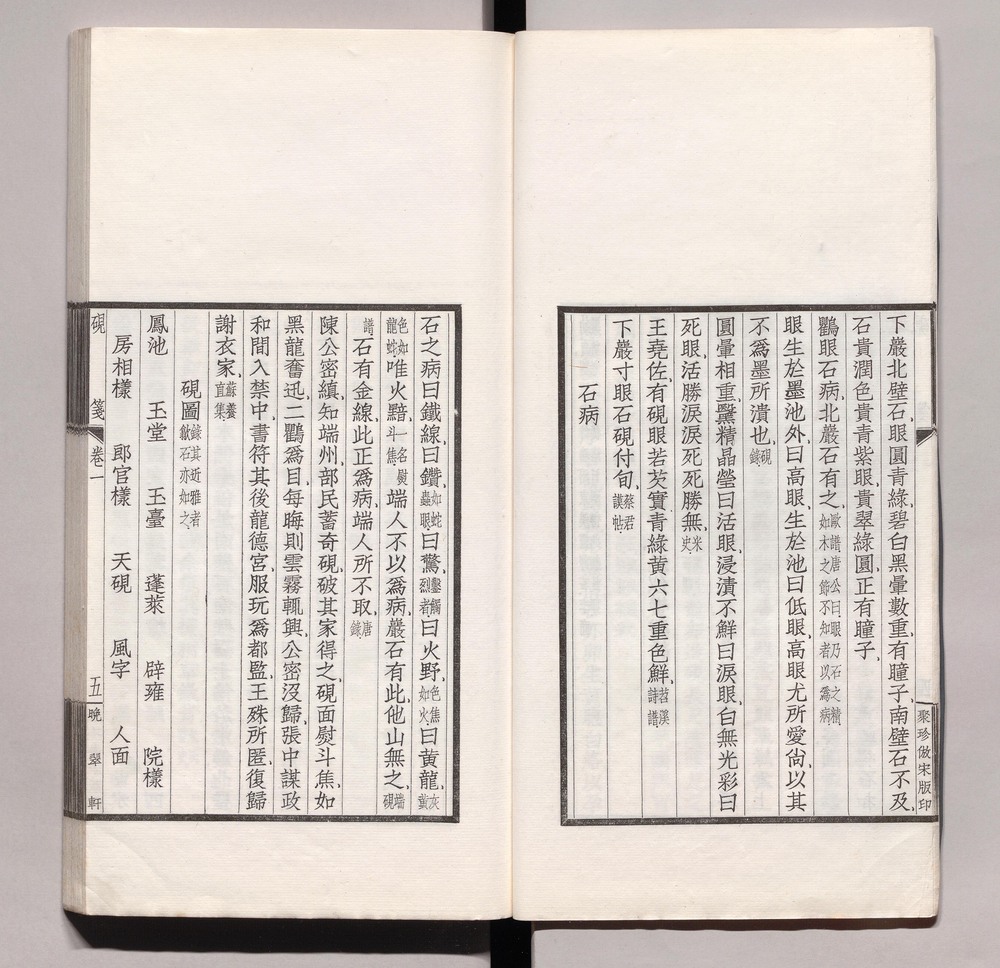 下巖北壁石、眼圓青綠碧白黑暈數重、有瞳子、南壁石不及、
石貴潤色貴青紫眼貴翠綠圓正有瞳子、
鸜眼石病、北巖石有之、歐譜唐公曰、眼乃石之精如木之節不知者以爲病
眼生於墨池外、曰高眼、生於池曰低眼、高眼尤所愛尙、以其
不爲墨所漬也、硯錄
圓暈相重、黳精晶瑩曰活眼、浸漬不鮮曰淚眼、白無光彩曰
死眼、活勝淚、淚死、死勝無、米史
王堯佐、有硯眼若芡實靑綠黃六七重色鮮、苕溪詩譜
下巖寸眼石硯付旬、蔡君謨帖
石病
聚珍倣宋版印
石之病曰鐵線、曰鑽、如蛇蟲眼曰驚、鑿觸烈者曰火野、色焦如火曰黃龍、灰黃
色如龍蛇唯火黯、一名熨斗焦端人不以爲病、巖石有此、他山無之、端硯
譜石有金線、此正爲病、端人所不取、唐錄
陳公密縝、知端州、部民蓄奇硯、破其家得之、硯面熨斗焦、如
黑龍奮迅、二鸜爲目、每晦則雲霧輒興、公密沒、歸張中謀、政
和間入禁中、書符其後龍德宮、服玩爲都監、王殊所匿、復歸
謝衣家、蘇養直集
硯圖錄其近雅者歙石亦如之
鳳池 玉堂 玉臺 蓬萊 辟雍 院樣
房相樣 郎官樣 天硯 風字 人面
硯箋 卷一 五 晚翠軒